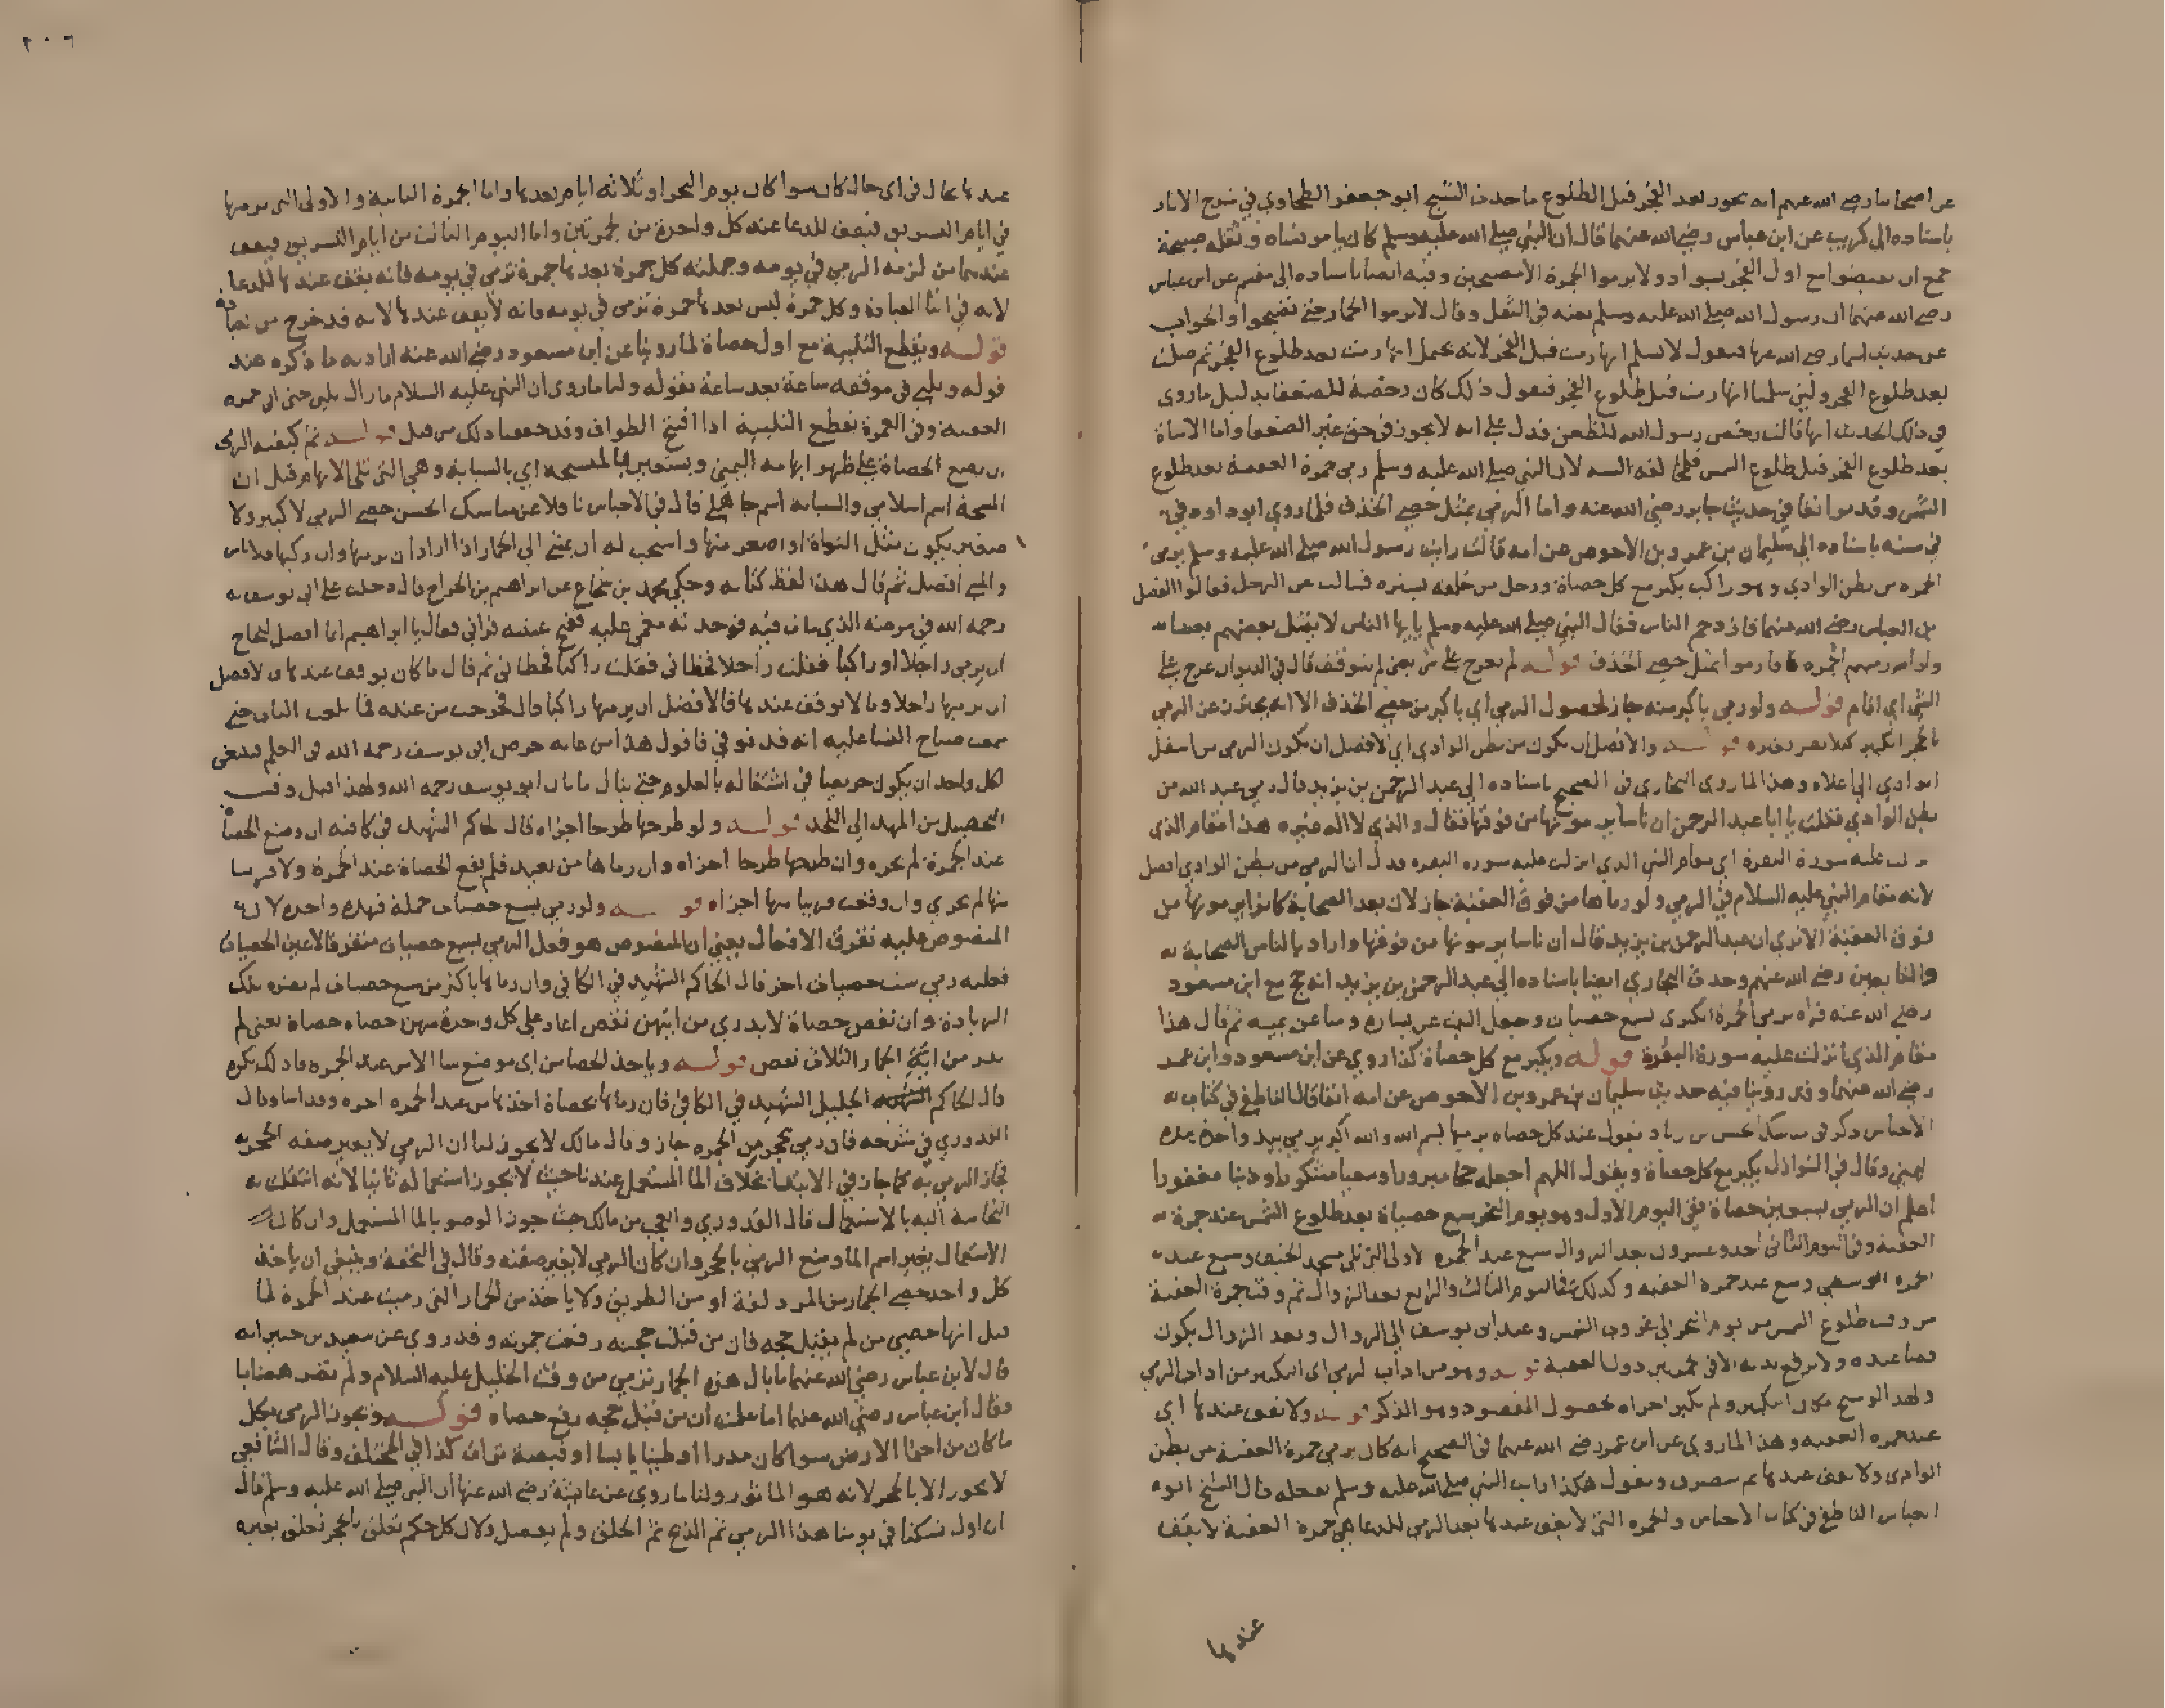 عن اصحابنا رضي الله عنهم انه يجوز بعد الفجر قبل الطلوع ما حدث الشيخ ابو جعفر الطحاوي في شرح الاثار
باسناده الي كريب عن ابن عباس رضي الله عنهما قال ان النبي صلي الله عليه وسلم كان يامر نساه وثقله صبيحة
جمع ان يفيضوا مع اول الفجر بسواد ولا يرموا الجمرة الا مصبحين وفيه ايضا باسناده الي مقسم عن ابن عباس
رضي الله عنهما ان رسول الله صلي الله عليه وسلم بعثه في الثقل وقال لا ترموا الجمار حتي تصبحوا والجواب
عن حديث اسما رضي الله عنها فنقول لا نسلم انها رمت قبل الفجر لانه يحتمل انها رمت بعد طلوع الفجر ثم صلت
بعد طلوع الفجر ولين سلمنا انها رمت قبل طلوع الفجر فنقول ذلك كان رخصة للضعفا بدليل ما روي
في ذلك الحديث انها قالت رخص رسول الله للظعن فدل علي انه لا يجوز في حق غير الضعفا واما الاساة
بعد طلوع الفجر قبل طلوع الشمس فلمخالفة السنة لان النبي صلي الله عليه وسلم رمي جمرة العقبة بعد طلوع
الشمس وقد مر انفا في حديث جابر رضي الله عنه واما الرمي بمثل حصي الخذف فلما روي ابو داود في
في سننه باسناده الي سليمان بن عمرو بن الاحوص عن امه قالت رايت رسول الله صلي الله عليه وسلم يرمي
الجمرة من بطن الوادي وهو راكب يكبر مع كل حصاة ورجل من خلفه يستره فسالت عن الرجل فقالوا الفضل
بن العباس رضي الله عنهما فازدحم الناس فقال النبي صلي الله عليه وسلم يا ايها الناس لا يقتل بعضكم بعضا
واذا رميتم الجمرة فارموا بمثل حصي الخذف قوله لم يعرج علي شي يعني لم يتوقف قال في الديوان عرج علي
الشي اي اقام قوله ولو رمي باكبر منه جاز لحصول الرمي اي باكبر من حصي الخذف الا انه يحترز عن الرمي
بالحجر الكبير كيلا يضر بغيره قوله والافضل ان يكون من بطن الوادي اي الافضل ان يكون الرمي من اسفل
الوادي الي اعلاه وهذا لما روي البخاري في الصحيح باسناده الي عبد الرحمن بن يزيد قال رمي عبد الله من
بطن الوادي فقلت يا ابا عبد الرحمن ان ناسا يرمونها من فوقها فقال والذي لا اله غيره هذا مقام الذي
انزلت عليه سورة البقرة اي مقام النبي الذي انزلت عليه سورة البقرة فدل ان الرمي من بطن الوادي افضل
لانه مقام النبي عليه السلام في الرمي ولو رماها من فوق العقبة جاز لان بعد الصحابة كانوا يرمونها من
فوق العقبة الا تري ان عبد الرحمن بن يزيد قال ان ناسا يرمونها من فوقها واراد بالناس الصحابة
والتابعين رضي الله عنهم وحدث البخاري ايضا باسناده الي عبد الرحمن بن يزيد انه حج مع ابن مسعود
رضي الله عنه فراه يرمي الجمرة الكبري بسبع حصيات وجعل البيت عن يساره ومنا عن يمينه ثم قال هذا
مقام الذي انزلت عليه سورة البقرة قوله ويكبر مع كل حصاة كذا روي عن ابن مسعود وابن عمر
رضي الله عنهما وقد روينا فيه حديث سليمان بن عمرو بن الاحوص عن امه انفا قال الناطفي في كتاب
الاجناس ذكر في مناسك الحسن بن زياد يقول عند كل حصاة يرميها بسم الله والله اكبر يرمي بيد واحدة بيده
اليمني وقال في النوازل يكبر مع كل حصاة ويقول اللهم اجعله حجا مبرورا وسعيا مشكورا وذنبا مغفورا
اعلم ان الرمي بسبعين حصاة ففي اليوم الاول وهو يوم النحر سبع حصاة بعد طلوع الشمس عند جمرة
العقبة وفي اليوم الثاني احد وعشرون بعد الزوال سبع عند الجمرة الاولي التي تلي مسجد الخيف وسبع عند
الجمرة الوسطي وسبع عند جمرة العقبة وكذلك في اليوم الثالث والرابع بعد الزوال ثم وقت جمرة العقبة
من وقت طلوع الشمس من يوم النحر الي غروب الشمس وعند ابي يوسف الي الزوال وبعد الزوال يكون
قضا عنده ولا يرفع يديه الا في الجمرتين دون العقبة قوله وهو من اداب الرمي اي التكبير من اداب الرمي
ولهذا لو سبح مكان التكبير ولم يكبر اجزاه لحصول المقصود وهو الذكر قوله ولا يقف عندها اي
عند جمرة العقبة وهذا لما روي عن ابن عمر رضي الله عنهما في الصحيح انه كان يرمي جمرة العقبة من بطن
الوادي ولا يقف عندها ثم ينصرف ويقول هكذا رايت النبي صلي الله عليه وسلم يفعله قال الشيخ ابو
العباس الناطفي في كتاب الاجناس والجمرة التي لا يقف عندها بعد الرمي للدعا هي جمرة العقبة لا يقف
عندها
٢٠٦
عندها بحال في اي حال كان سوا كان يوم النحر او ثلاثة ايام بعدها واما الجمرة الثانية والاولي التي يرميها
في ايام التشريق فيقف للدعا عند كل واحدة من الجمرتين واما اليوم الثالث من ايام التشريق فيقف
عندهما من لزمه الرمي في يومه وجملته كل جمرة بعدها جمرة ترمي في يومه فانه يقف عندها للدعا
لانه في اثنا العبادة وكل جمرة ليس بعدها جمرة ترمي في يومه فانه لا يقف عندها لانه قد خرج من العبادة
قوله ويقطع التلبية مع اول حصاة لما روينا عن ابن مسعود رضي الله عنه اراد به ما ذكره عند
قوله ويلبي في موقفه ساعة بعد ساعة بقوله ولنا ما روي ان النبي عليه السلام ما زال يلبي حتي اتي جمرة
العقبة وفي العمرة يقطع التلبية اذا افتتح الطواف وقد حققنا ذلك من قبل قوله ثم كيفية الرمي
ان يضع الحصاة علي ظهر ابهامه اليمني ويستعين بالمسبحة اي بالسبابة وهي التي تلي الابهام قيل ان
المسبحة اسم اسلامي والسبابة اسم جاهلي قال في الاجناس ناقلا عن مناسك الحسن حصي الرمي لا كبير ولا
صغير يكون مثل النواة او اصغر منها واستحب له ان يمشي الي الجمار اذا اراد ان يرميها وان ركبها فلا باس
والمشي افضل ثم قال هذا لفظ كتابه وحكي محمد بن شجاع عن ابراهيم بن الجراح قال دخلت علي ابي يوسف
رحمه الله في مرضه الذي مات فيه فوجدته مغمي عليه ففتح عينيه فراني فقال يا ابراهيم ايما افضل للحاج
ان يرمي راجلا او راكبا فقلت راجلا فخطاني فقلت راكبا فخطاني ثم قال ما كان يوقف عندها فالافضل
ان يرميها راجلا وما لا يوقف عندها فالافضل ان يرميها راكبا قال فخرجت من عنده فما بلغت الباب حتي
سمعت صياح النسا عليه انه قد توفي فاقول هذا من غاية حرص ابي يوسف رحمه الله في العلم فينبغي
لكل واحد ان يكون حريصا في اشتغاله بالعلوم حتي ينال ما نال ابو يوسف رحمه الله ولهذا قيل وقت
التحصيل من المهد الي اللحد قوله ولو طرحها طرحا اجزاه قال الحاكم الشهيد في كافيه ان وضع الحصاة
عند الجمرة لم يجزه وان طرحها طرحا اجزاه وان رماها من بعيد فلم يقع الحصاة عند الجمرة ولا قريبا
منها لم يجزي وان وقعت قريبا منها اجزاه قوله ولو رمي بسبع حصيات جملة فهذه واحدة لان
المنصوص عليه تفرق الافعال يعني ان المنصوص هو فعل الرمي بسبع حصيات متفرقا لا عين الحصيات
فعليه رمي ست حصيات اخر قال الحاكم الشهيد في الكافي وان رماها باكثر من سبع حصيات لم يضره تلك
الزيادة وان نقص حصاة لا يدري من ايتهن نقص اعاد علي كل واحدة منهن حصاة حصاة يعني لم
يدر من اية الجمار الثلاث نقص قوله وياخذ الحصا من اي موضع شا الا من عند الجمرة فان ذلك يكره
قال الحاكم الجليل الشهيد في الكافي فان رماها بحصاة اخذها من عند الجمرة اجزه وقد اسا وقال
القدوري في شرحه فان رمي بحجر من الجمرة جاز وقال مالك لا يجوز لنا ان الرمي لا يغير صفة الحجر
فجاز الرمي به كما جاز في الابتدا بخلاف الما المستعمل عندنا حيث لا يجوز استعماله ثانيا لانه انتقلت
النجاسة اليه بالاستعمال قال القدوري والعجب من مالك حيث جوز الوضو بالما المستعمل وان كان
الاستعمال يغير اسم الما ومنع الرمي بالحجر وان كان الرمي لا يغير صفته وقال في التحفة وينبغي ان ياخذ
كل واحد حصي الجمار من المزدلفة او من الطريق ولا ياخذ من الجمار التي رميت عند الجمرة لما
قيل انها حصي من لم يقبل حجه فان من قبلت حجته رفعت جمرته وقد روي عن سعيد بن جبير انه
قال لابن عباس رضي الله عنهما ما بال هذه الجمار ترمي من وقت الخليل عليه السلام ولم تصر هضابا
فقال ابن عباس رضي الله عنهما اما علمت ان من قبل حجه رفع حصاه قوله ويجوز الرمي بكل
ما كان من اجزا الارض سوا كان مدرا او طينا يابسا او قبضة تراب كذا في المختلف وقال الشافعي
لا يجوز الا بالحجر لانه هو الماثور ولنا ما روي عن عايشة رضي الله عنها ان النبي صلي الله عليه وسلم قال
ان اول نسكنا في يومنا هذا الرمي ثم الذبح ثم الحلق ولم يفصل ولان كل حكم تعلق بالحجر تعلق بغيره